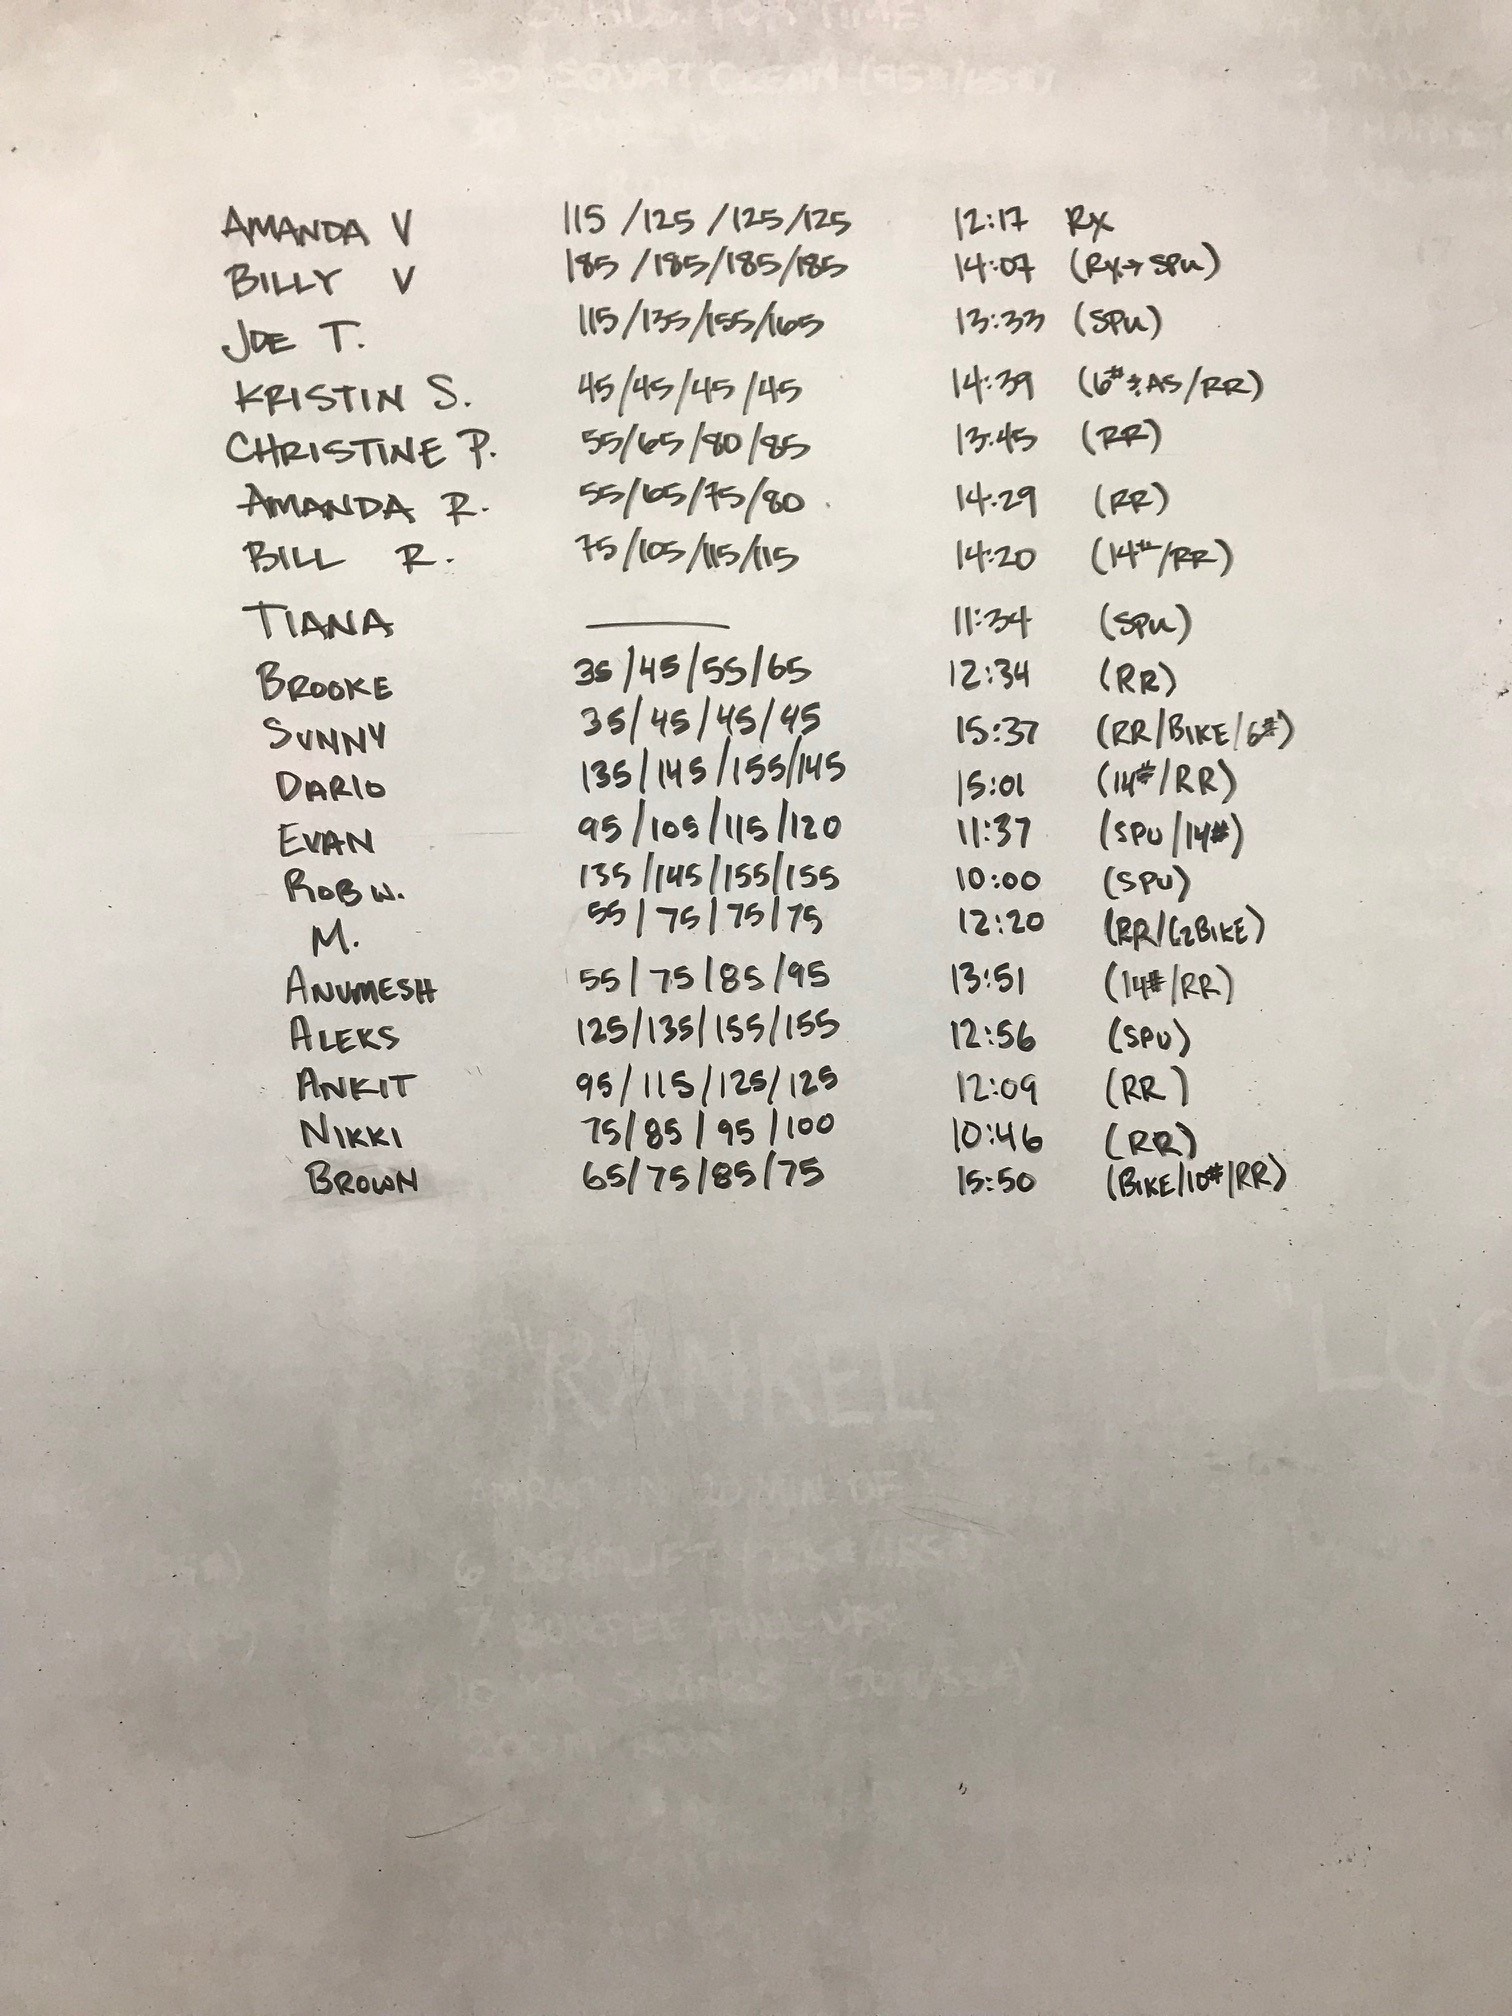 30 SQUAT CLEAN
AMANDA V 115 /125 /125/125 12:17 RX
BILLY V 185 /185/185/185 14:07 (RX→SPU)
JOE T. 115/135/155/165 13:33 (SPU)
KRISTIN S. 45/45/45/45 14:39 (6# & AS/RR)
CHRISTINE P. 55/65/80/85 13:45 (RR)
AMANDA R. 55/65/75/80 14:29 (RR)
BILL R. 75/105/115/115 14:20 (14#/RR)
TIANA —— 11:34 (SPU)
BROOKE 35/45/55/65 12:34 (RR)
SUNNY 35/45/45/45 15:37 (RR/BIKE/6#)
DARIO 135/145/155/145 15:01 (14#/RR)
EVAN 95/105/115/120 11:37 (SPU/14#)
ROB W. 135/145/155/155 10:00 (SPU)
M. 55/75/75/75 12:20 (RR/ BIKE)
ANUMESH 55/75/85/95 13:51 (14#/RR)
ALEKS 125/135/155/155 12:56 (SPU)
ANKIT 95/115/125/125 12:09 (RR)
NIKKI 75/85/95/100 10:46 (RR)
BROWN 65/75/85/75 15:50 (BIKE/10#/RR)
"RANKEL
"LUC
IN 20 MIN. OF
6 DEADLIFT
7 BURPEE PULL-UPS
10 KB SWINGS
200M RUN